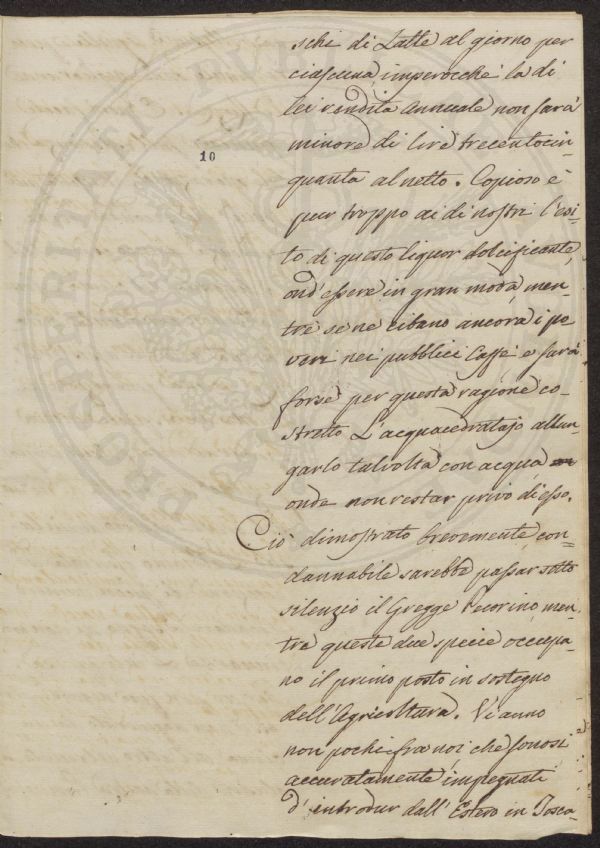 schi di Latte al giorno per
ciascuna imperocchè la di
lei vendita annuale non sarà
minore di lire trecentocin-
10
quanta al netto. Copioso è
pur troppo ai dì nostri l'esi-
to di questo liquor dolcificante,
ond'essere in gran moda, men-
tre se ne cibano ancora i po
veri nei pubblici Caffè e sarà
forse per questa ragione co-
stretto L'acquacedratajo allun-
garlo talvolta con acqua
onde non restar privo d'esso.
Ciò dimostrato brevemente con-
dannabile sarebbe passar sotto
silenzio il Gregge Pecorino, men
tre queste due specie occupa-
no il primo posto in sostegno
dell'Agricoltura. Vi anno
non pochi fra noi che sonosi
accuratamente impegnati
d'introdur dall'Estero in Tosca
PROSPERITATI PUBL